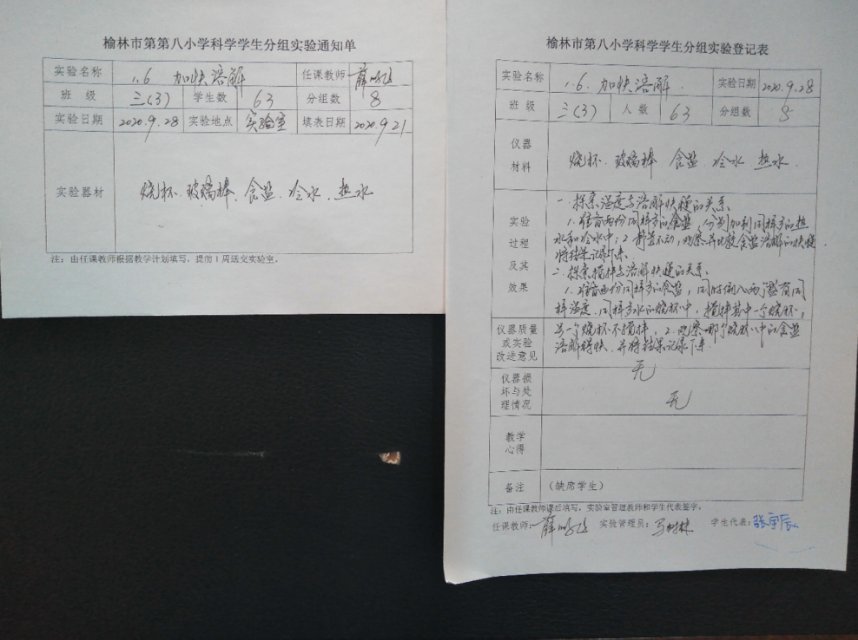 榆林市第第八小学科学学生分组实验通知单
实验名称 1.6 加快溶解 任课教师 薛
班级 三(3) 学生数 63 分组数 8
实验日期 2020.9.28 实验地点 实验室 填表日期 2020.9.21
实验器材 烧杯、玻璃棒、食盐、冷水、热水
注：由任课教师根据教学计划填写，提前1周送交实验室。
榆林市第第八小学科学学生分组实验登记表
实验名称 1.6. 加快溶解 实验日期 2020.9.28
班级 三(3) 人数 63 分组数 8
仪器材料 烧杯 玻璃棒 食盐 冷水 热水
实验过程及其效果
一、探索温度与溶解快慢的关系
1.准备两份同样多的食盐，分别加到同样多的热
水和冷水中；2.静置不动，观察并比较食盐溶解的快慢
将结果记录下来
二、探索搅拌与溶解快慢的关系、
1.准备两份同样多的食盐，同时倒入两个盛有同
样温度、同样多水的烧杯中，搅拌其中一个烧杯，
另一个烧杯不搅拌，2.观察哪个烧杯中的食盐
溶解得快，并将结果记录下来
仪器质量或实验改进意见 无
仪器损坏与处理情况 无
教学心得
备注 (缺席学生)
注：由任课教师课后填写，实验室管理教师和学生代表签字。
任课教师：薛 实验管理员： 学生代表：张宇辰